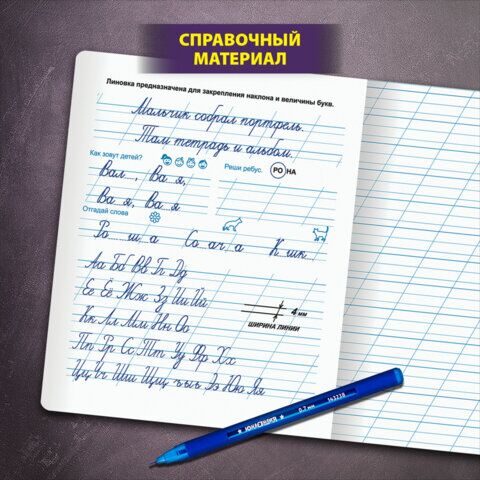 СПРАВОЧНЫЙ
МАТЕРИАЛ
Линовка предназначена для закрепления наклона и величины букв.
Мальчик собрал портфель.
Там тетрадь и альбом.
Как зовут детей?
Реши ребус. РО НА
Вал..., Ва...я,
Ва...я, Ва...я
Отгадай слова
Ро...ш...а Со...аг...а К...шк...
Аа Бб Вв Гг Дд
Ее Ёё Жж Зз Ии Йй
4 мм
Кк Лл Мм Нн Оо
ШИРИНА ЛИНИИ
Пп Рр Сс Тт Уу Фф Хх
Цц Чч Шш Щщ ъыь Ээ Юю Яя
ЮНЛАНДИЯ 0,7 мм 143238